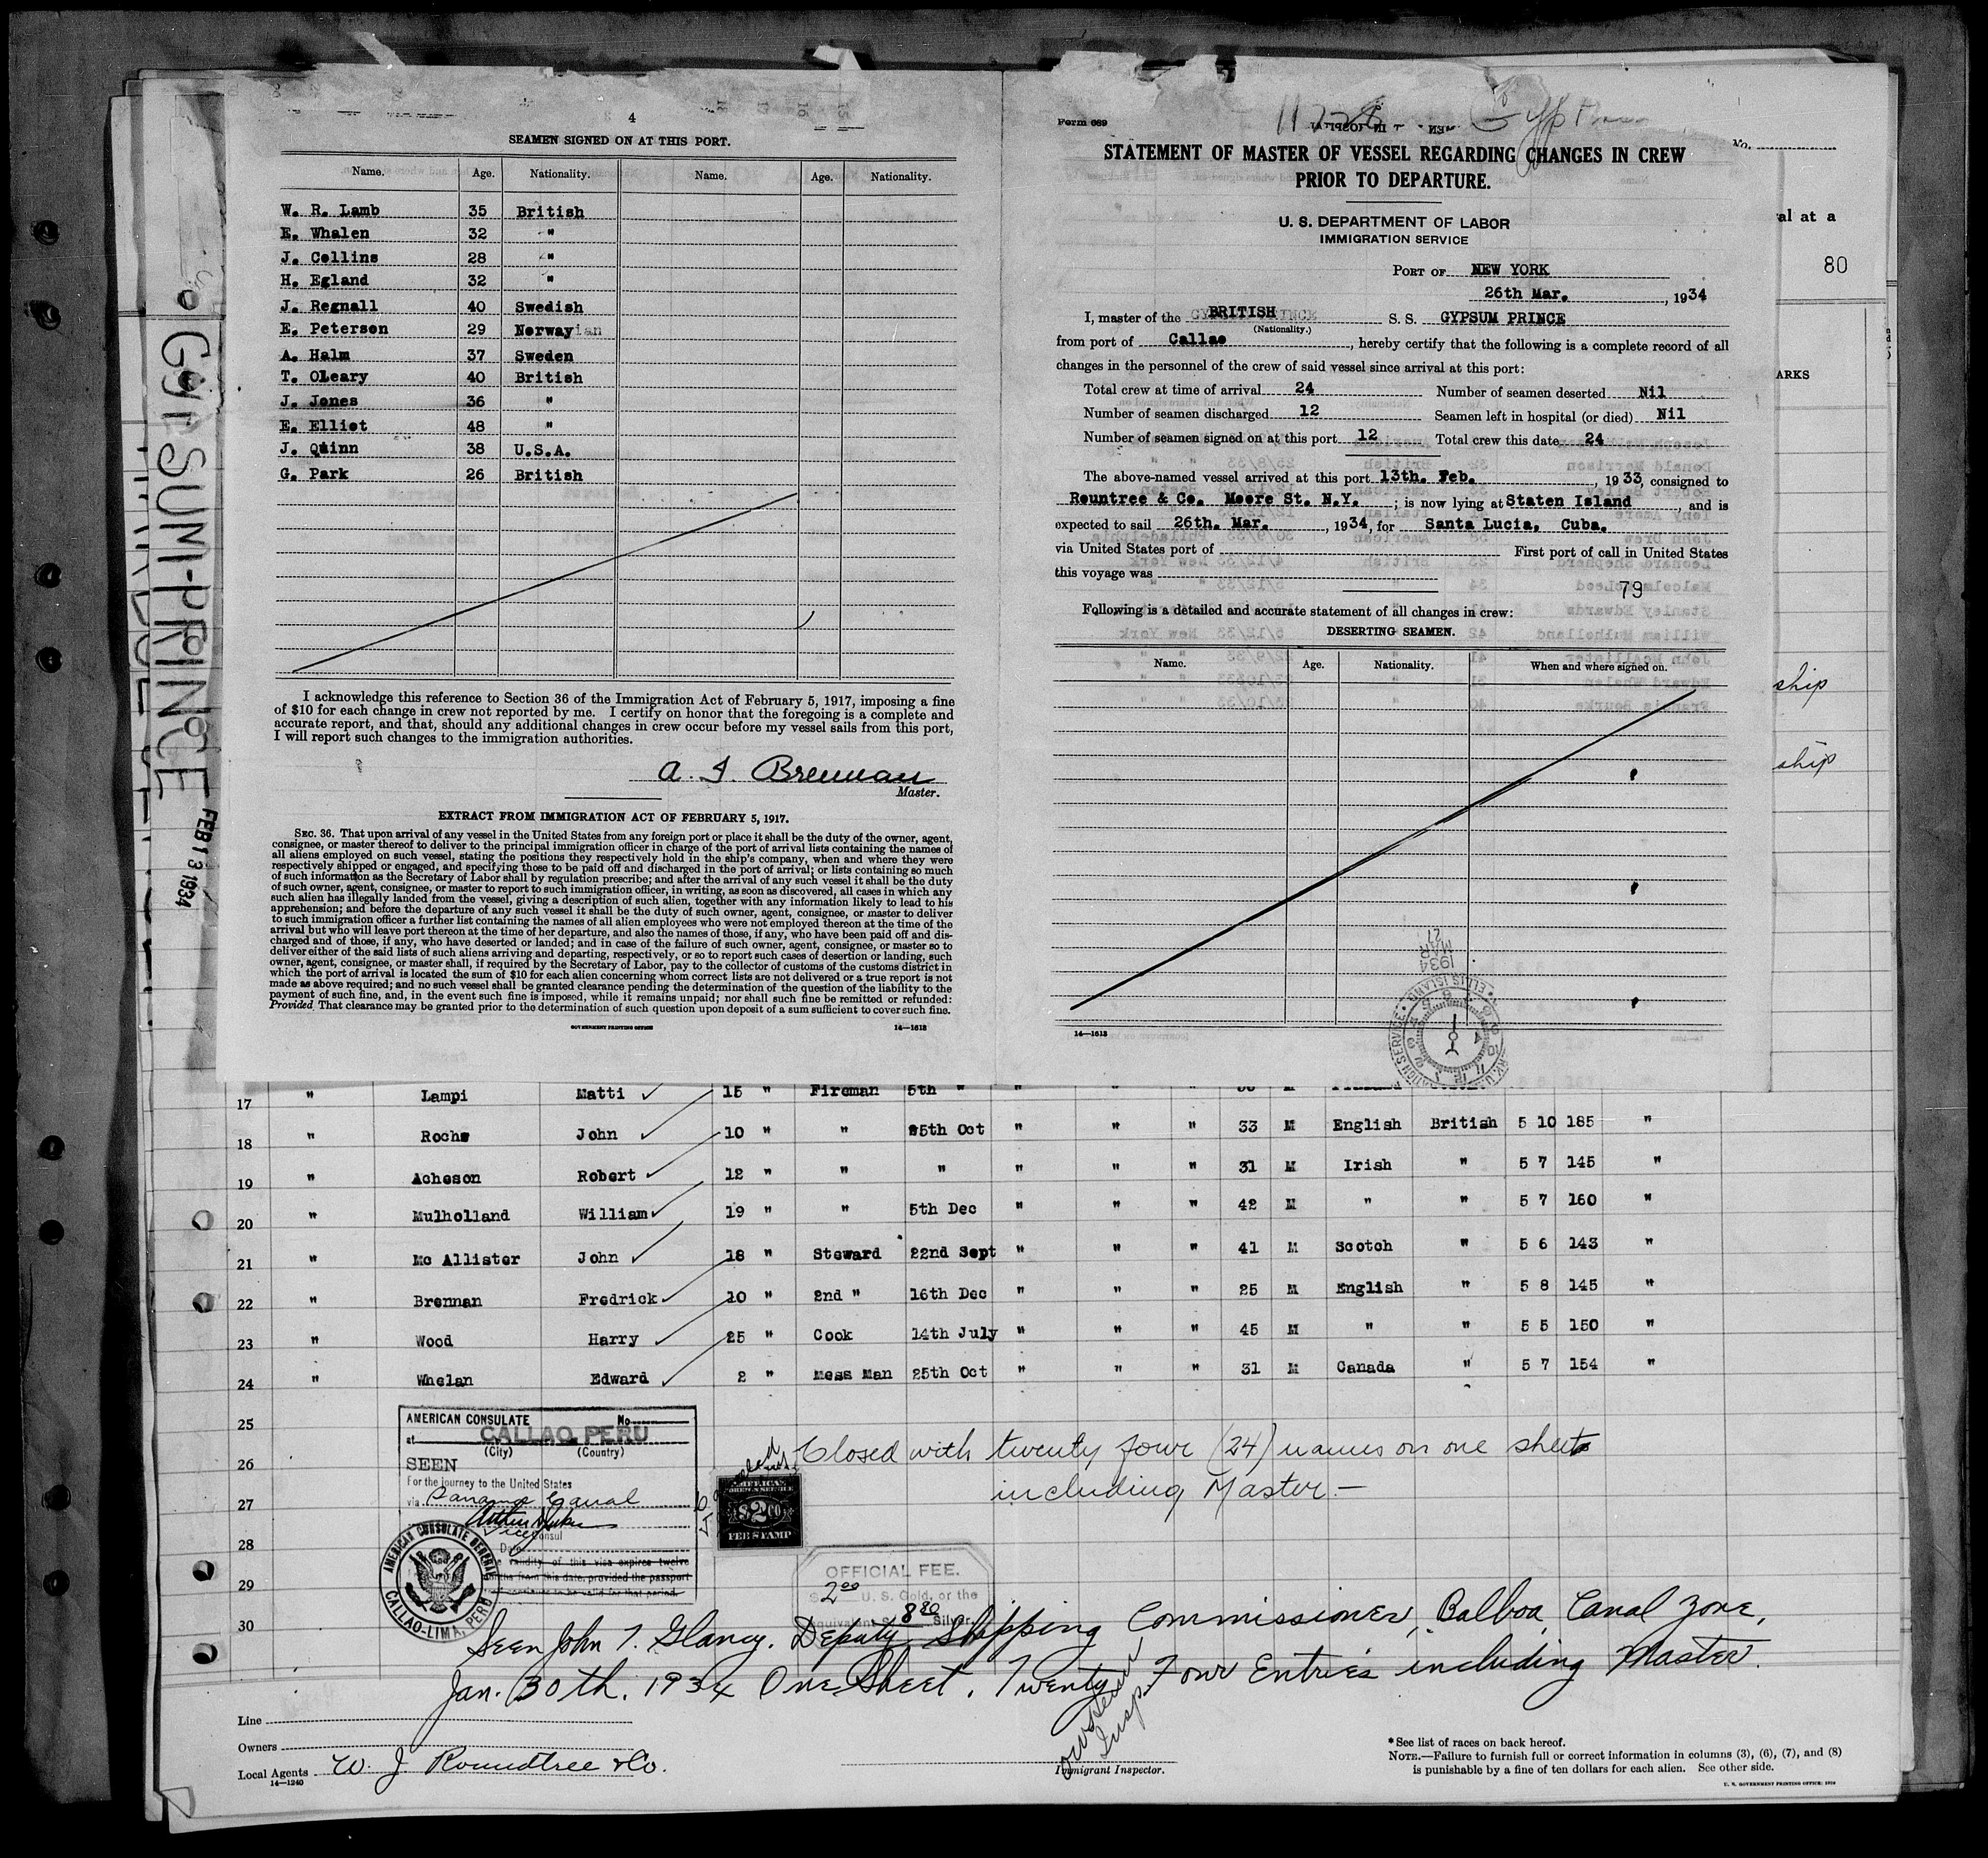 4
SEAMEN SIGNED ON AT THIS PORT.
Name. Age. Nationality. Name. Age. Nationality.
W. R. Lamb 35 British
E. Whalen 32 "
J. Collins 28 "
H. Egland 32 "
J. Regnall 40 Swedish
E. Peterson 29 Norwayian
A. Halm 37 Sweden
T. Oleary 40 British
J. Jones 36 "
E. Elliot 48 "
J. Quinn 38 U.S.A.
G. Park 26 British
I acknowledge this reference to Section 36 of the Immigration Act of February 5, 1917, imposing a fine
of $10 for each change in crew not reported by me. I certify on honor that the foregoing is a complete and
accurate report, and that, should any additional changes in crew occur before my vessel sails from this port,
I will report such changes to the immigration authorities.
A. J. Brennan
Master.
EXTRACT FROM IMMIGRATION ACT OF FEBRUARY 5, 1917.
SEC. 36. That upon arrival of any vessel in the United States from any foreign port or place it shall be the duty of the owner, agent,
consignee, or master thereof to deliver to the principal immigration officer in charge of the port of arrival lists containing the names of
all aliens employed on such vessel, stating the positions they respectively hold in the ship's company, when and where they were
respectively shipped or engaged, and specifying those to be paid off and discharged in the port of arrival; or lists containing so much
of such information as the Secretary of Labor shall by regulation prescribe; and after the arrival of any such vessel it shall be the duty
of such owner, agent, consignee, or master to report to such immigration officer, in writing, as soon as discovered, all cases in which any
such alien has illegally landed from the vessel, giving a description of such alien, together with any information likely to lead to his
apprehension; and before the departure of any such vessel it shall be the duty of such owner, agent, consignee, or master to deliver
to such immigration officer a further list containing the names of all alien employees who were not employed thereon at the time of the
arrival but who will leave port thereon at the time of her departure, and also the names of those, if any, who have been paid off and dis-
charged and of those, if any, who have deserted or landed; and in case of the failure of such owner, agent, consignee, or master so to
deliver either of the said lists of such aliens arriving and departing, respectively, or so to report such cases of desertion or landing, such
owner, agent, consignee, or master shall, if required by the Secretary of Labor, pay to the collector of customs of the customs district in
which the port of arrival is located the sum of $10 for each alien concerning whom correct lists are not delivered or a true report is not
made as above required; and no such vessel shall be granted clearance pending the determination of the question of the liability to the
payment of such fine, and, in the event such fine is imposed, while it remains unpaid; nor shall such fine be remitted or refunded:
Provided, That clearance may be granted prior to the determination of such question upon deposit of a sum sufficient to cover such fine.
GOVERNMENT PRINTING OFFICE 14—1613
Form 689
STATEMENT OF MASTER OF VESSEL REGARDING CHANGES IN CREW
PRIOR TO DEPARTURE.
U. S. DEPARTMENT OF LABOR
IMMIGRATION SERVICE
PORT OF NEW YORK
26th Mar. , 1934
I, master of the BRITISH S. S. GYPSUM PRINCE
(Nationality.)
from port of Callao , hereby certify that the following is a complete record of all
changes in the personnel of the crew of said vessel since arrival at this port:
Total crew at time of arrival 24 Number of seamen deserted Nil
Number of seamen discharged 12 Seamen left in hospital (or died) Nil
Number of seamen signed on at this port 12 Total crew this date 24
The above-named vessel arrived at this port 13th. Feb. , 1933, consigned to
Rountree & Co. Moore St. N.Y. ; is now lying at Staten Island , and is
expected to sail 26th. Mar. , 1934, for Santa Lucia, Cuba.
via United States port of First port of call in United States
this voyage was
79
Following is a detailed and accurate statement of all changes in crew:
DESERTING SEAMEN.
Name. Age. Nationality. When and where signed on.
14—1613
MAR 27 1934
ELLIS ISLAND
No.
val at a
80
ARKS
ship
ship
GYPSUM-PRINCE
FEB 13 1934
17 " Lampi Matti 15 " Fireman 5th " " " "
18 " Roche John 10 " " 25th Oct " " " 33 M English British 5 10 185 "
19 " Acheson Robert 12 " " " " " " 31 M Irish " 5 7 145 "
20 " Mulholland William 19 " " 5th Dec " " " 42 M " " 5 7 160 "
21 " Mc Allister John 18 " Steward 22nd Sept " " " 41 M Scotch " 5 6 143 "
22 " Brennan Fredrick 10 " 2nd " 16th Dec " " " 25 M English " 5 8 145 "
23 " Wood Harry 25 " Cook 14th July " " " 45 M " " 5 5 150 "
24 " Whelan Edward 2 " Mess Man 25th Oct " " " 31 M Canada " 5 7 154 "
25
26
27
28
29
30
AMERICAN CONSULATE No.
at CALLAO PERU
(City) (Country)
SEEN
For the journey to the United States
via Panama Canal
Vice Consul
Date
validity of this visa expires twelve
months from this date, provided the passport
continues to be valid for that period.
AMERICAN CONSULATE GENERAL
CALLAO-LIMA, PERU
$2.00
FEE STAMP
Closed with twenty four (24) names on one sheet
including Master —
OFFICIAL FEE.
2.00 U. S. Gold, or the
equivalent $ 8.80 Silver.
Seen John T. Glancy. Deputy Shipping Commissioner, Balboa, Canal Zone,
Jan. 30th. 1934 One Sheet. Twenty Four Entries including Master.
Line
Owners
Local Agents W. J. Roundtree & Co.
14—1240
Insp.
Immigrant Inspector.
*See list of races on back hereof.
NOTE.—Failure to furnish full or correct information in columns (3), (6), (7), and (8)
is punishable by a fine of ten dollars for each alien. See other side.
U. S. GOVERNMENT PRINTING OFFICE: 1929